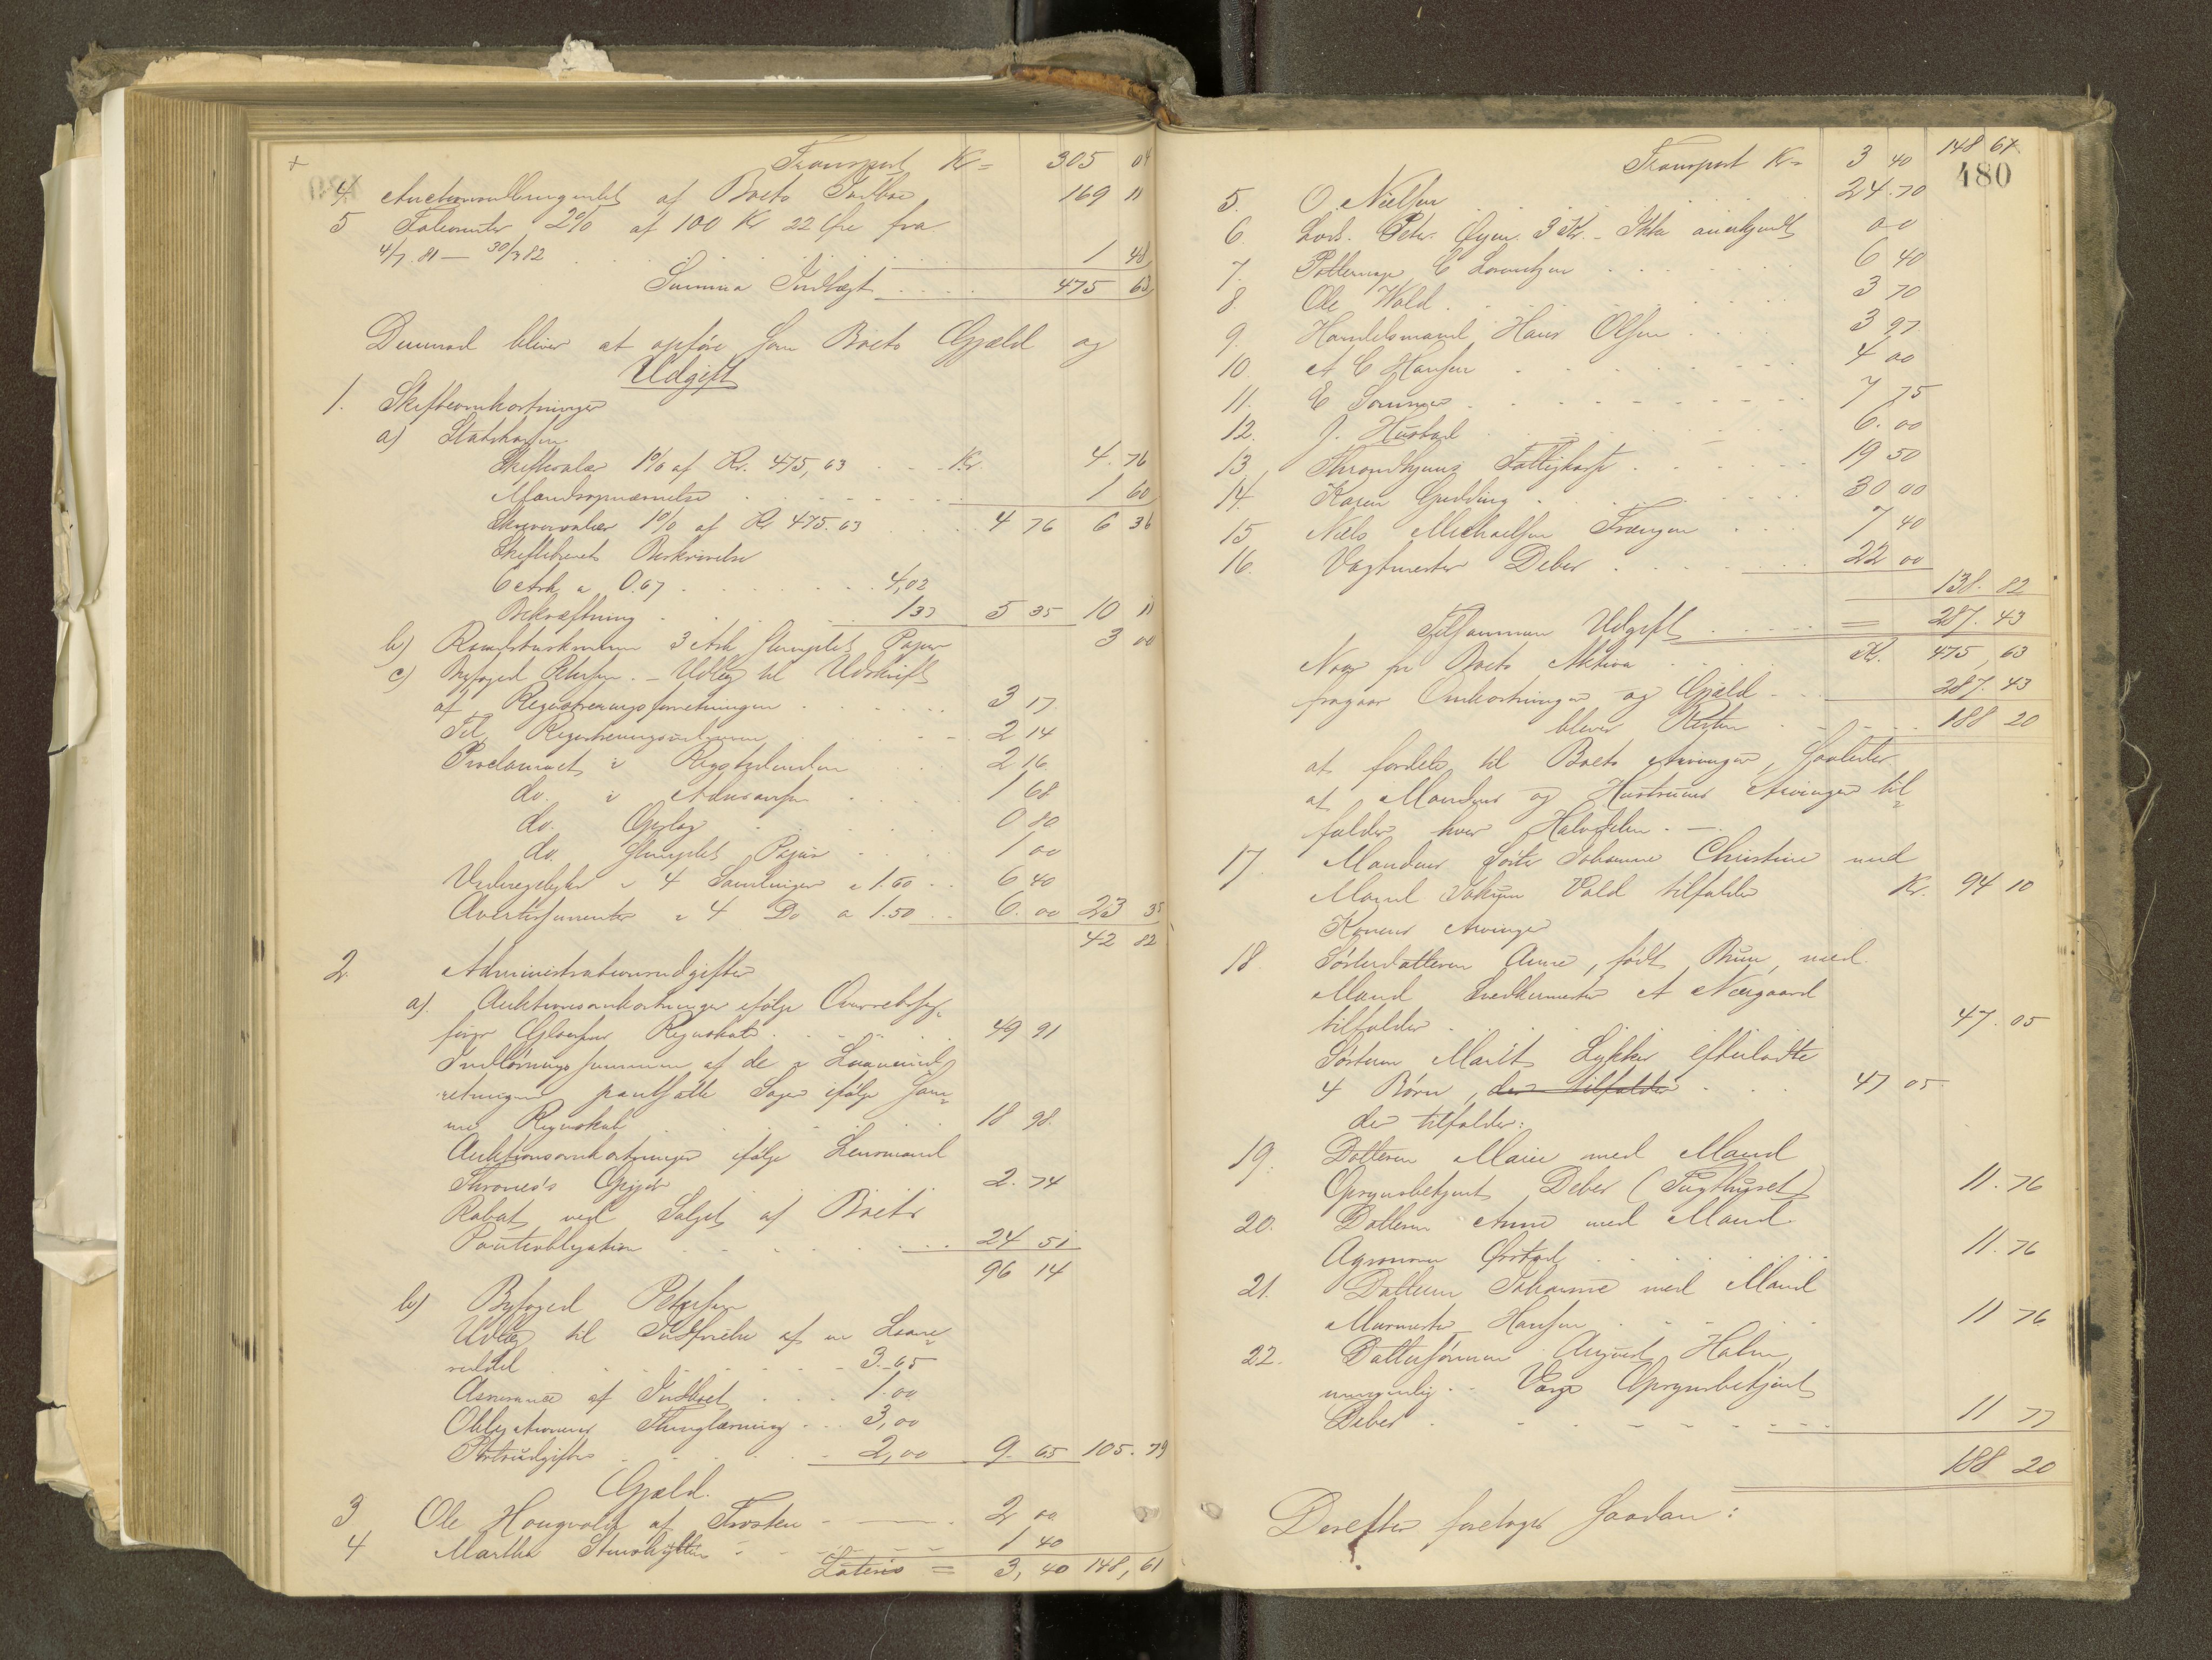 Transport Kr= 305 04
4. Auctionsudbringendet af Boets Indbo 169 11
5 Folierenter 2% af 100 Kr 22 Øre fra
4/7. 81 — 30/3 82 1 48
Summa Indtægt 475 63
Derimod bliver at opføre som Boets Gjæld og
Udgift
1. Skifteomkostninger
a) Statskassen
Skiftesalær 1% af Kr. 475,63 Kr. 4.76
Mandsopnævnelse 1 60
Skriversalær 1% af Kr 475.63 4 76 6 36
Skiftebrevets Beskrivelse
6 Ark a 0.67 4,02
Bekræftning 1 33 5 35 10 11
b) 3 Ark stemplet Papir 3 00
c) Byfoged Petersen. – Udlæg til Udskrift
af Registreringsforretningen 3 17.
Til Registreringsmændene 2 14
Proclamaet i Rigstidenden 2 16
do. i Adresseavisen 1 68
do. Opslag 0 80
do. stemplet Papir 1 00
4 Samlinger a 1.60 6 40
Avertissementer 4 Do a 1.50 6.00 23 35
42 82
2. Administrationsudgifter
a). Auktionsomkostninger ifølge Overretssag-
fører Regnskab 49 91
Indløsningssummen af de i Laaneind-
retningen pantsatte Sager ifølge sam-
me Regnskab 18 98.
Auktionsomkostninger ifølge Lensmand
Thrones's Opgjør 2.74
Rabat ved Salget af Boets
Panteobligation 24 51
96 14
b) Byfoged Petersen
Udlæg til Indfrielse af en Laane-
seddel 3.65
Assurance af Indboet 1.00
Obligationens Thinglæsning 3,00
Portoudgifter 2,00 9.65 105.79
Gjæld.
3 Ole Hougvold af Frosten 2 00
4 Martha 1 40
Lateris = 3,40 148,61
Transport Kr= 3 40 148 61
480
5. O. Nielsen 24.70
6. Lods. Peter Øyen. 3 Kr. – Ikke anerkjendt 00
7. C Lorentzen 6 40
8. Ole Wold 3 70
9. Handelsmand Hans Olsen 3 97
10. A C Hansen 4 00
11. E 7 75
12. J. Hustad 6.00
13. Throndhjems Fattigkasse 19 50
14. Karen Gudding 30 00
15 Niels Michaelsen 7 40
16. Vagtmester Deber 22 00
138.82
Tilsammen Udgift = 287.43
Naar fra Boets Aktiva Kr. 475,63
fragaar Omkostninger og Gjæld 287.43
bliver Resten 188 20
at fordele til Boets Arvinger, saaledes
at Mandens og Hustruens Arvinger til-
falder hver Halvdelen. —
17. Mandens Søster Johanne Christine med
Mand Jokum Vold tilfalder Kr. 94 10
Konens Arvinger
18. Søsterdatteren Anne, født Bruun, med
Mand Snedkermester A Nergaard
tilfalder 47.05
Søsteren Marit Lykkes efterladte
4 Børn, der tilfalder 47 05
der tilfalder:
19. Datteren Marie med Mand
Opsynsbetjent Deber (Tugthuset) 11.76
20. Datteren Anne med Mand
Agronom 11.76
21. Datteren Johanne med Mand
Murmester Hansen 11 76
22. Dattersønnen August Holm,
umyndig. Værge Opsynsbetjent
Deber 11 77
188 20
Derefter foretages saadan: